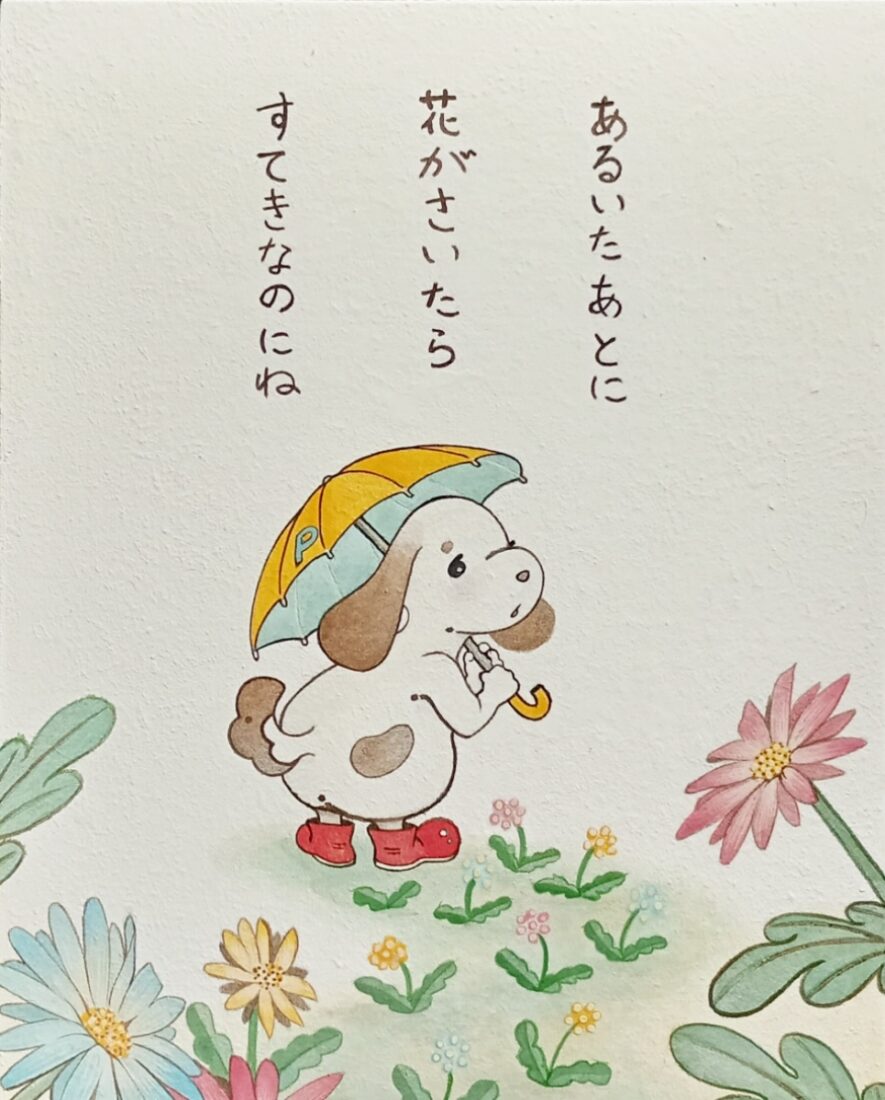 あるいたあとに
花がさいたら
すてきなのにね
P